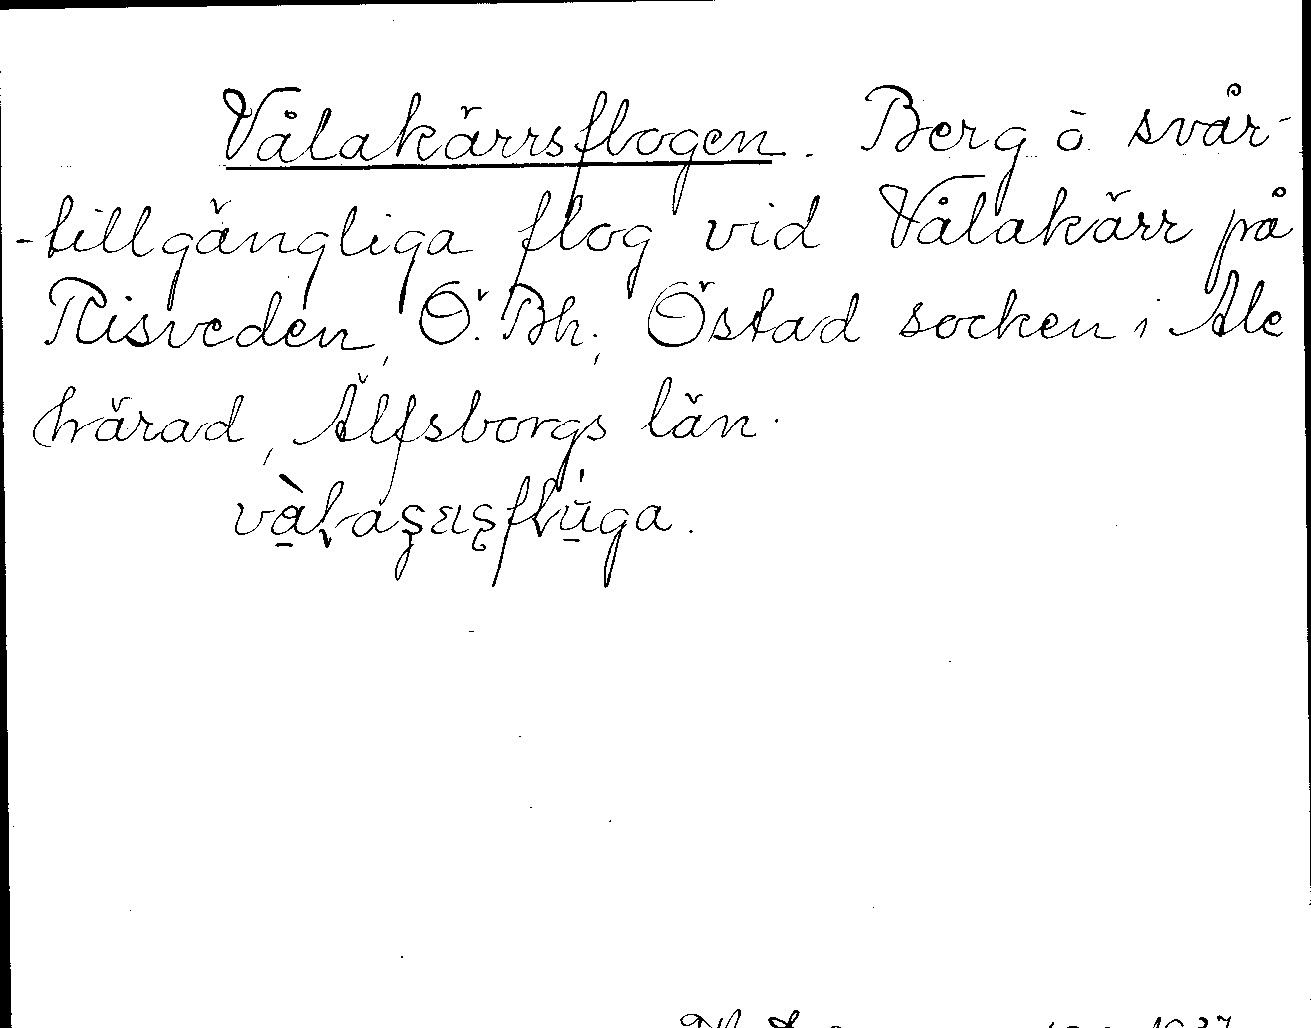 Vålakärrsflogen. Berg o svår-
-tillgängliga flog vid Vålakärr på
Risveden, Ö. Bh., Östad socken i Ale
härad, Älfsborgs län.